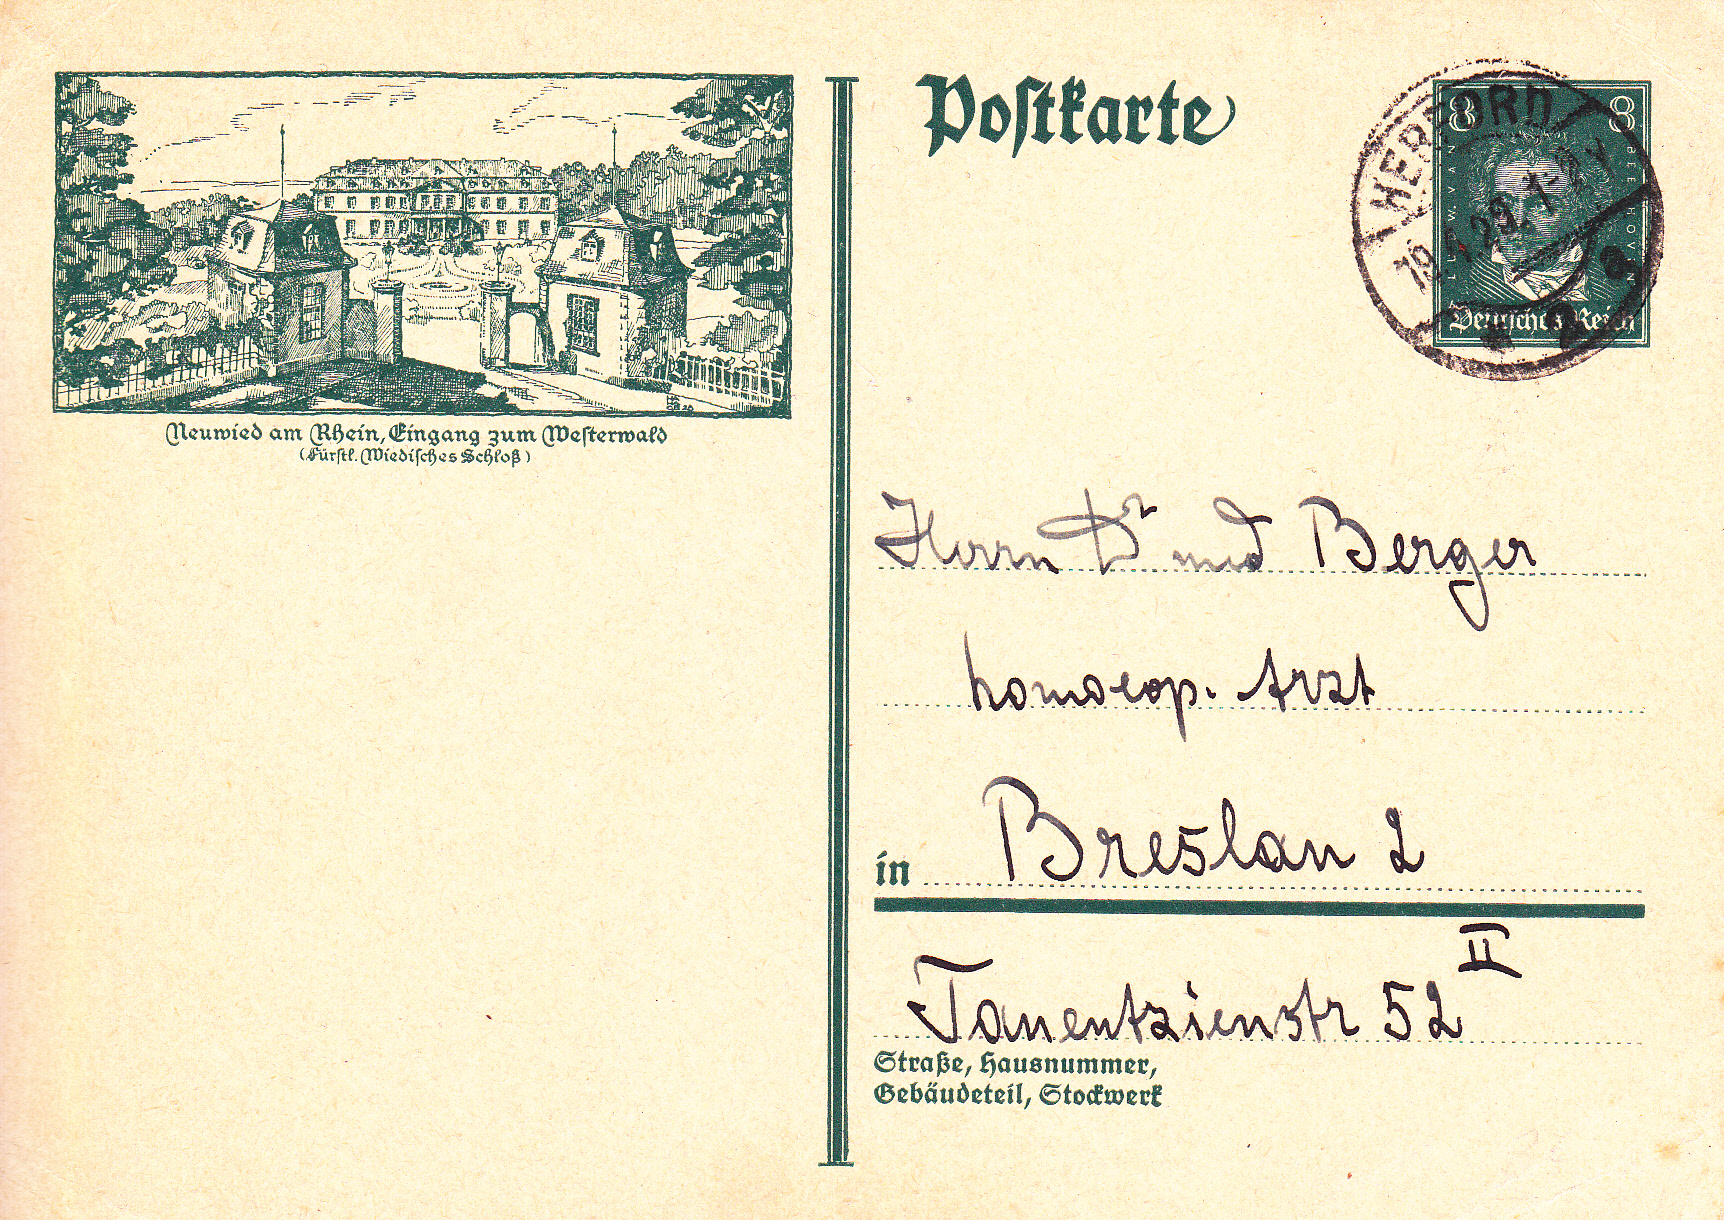 Postkarte
8 8
LUDWIG VAN BEETHOVEN
Deutsches Reich
HERFORD
Neuwied am Rhein, Eingang zum Westerwald
(Fürstl. Wiedisches Schloß)
Herrn Dr med Berger
homoeop. Arzt
in Breslau 2
Tauentzienstr 52 II
Straße, Hausnummer,
Gebäudeteil, Stockwerk